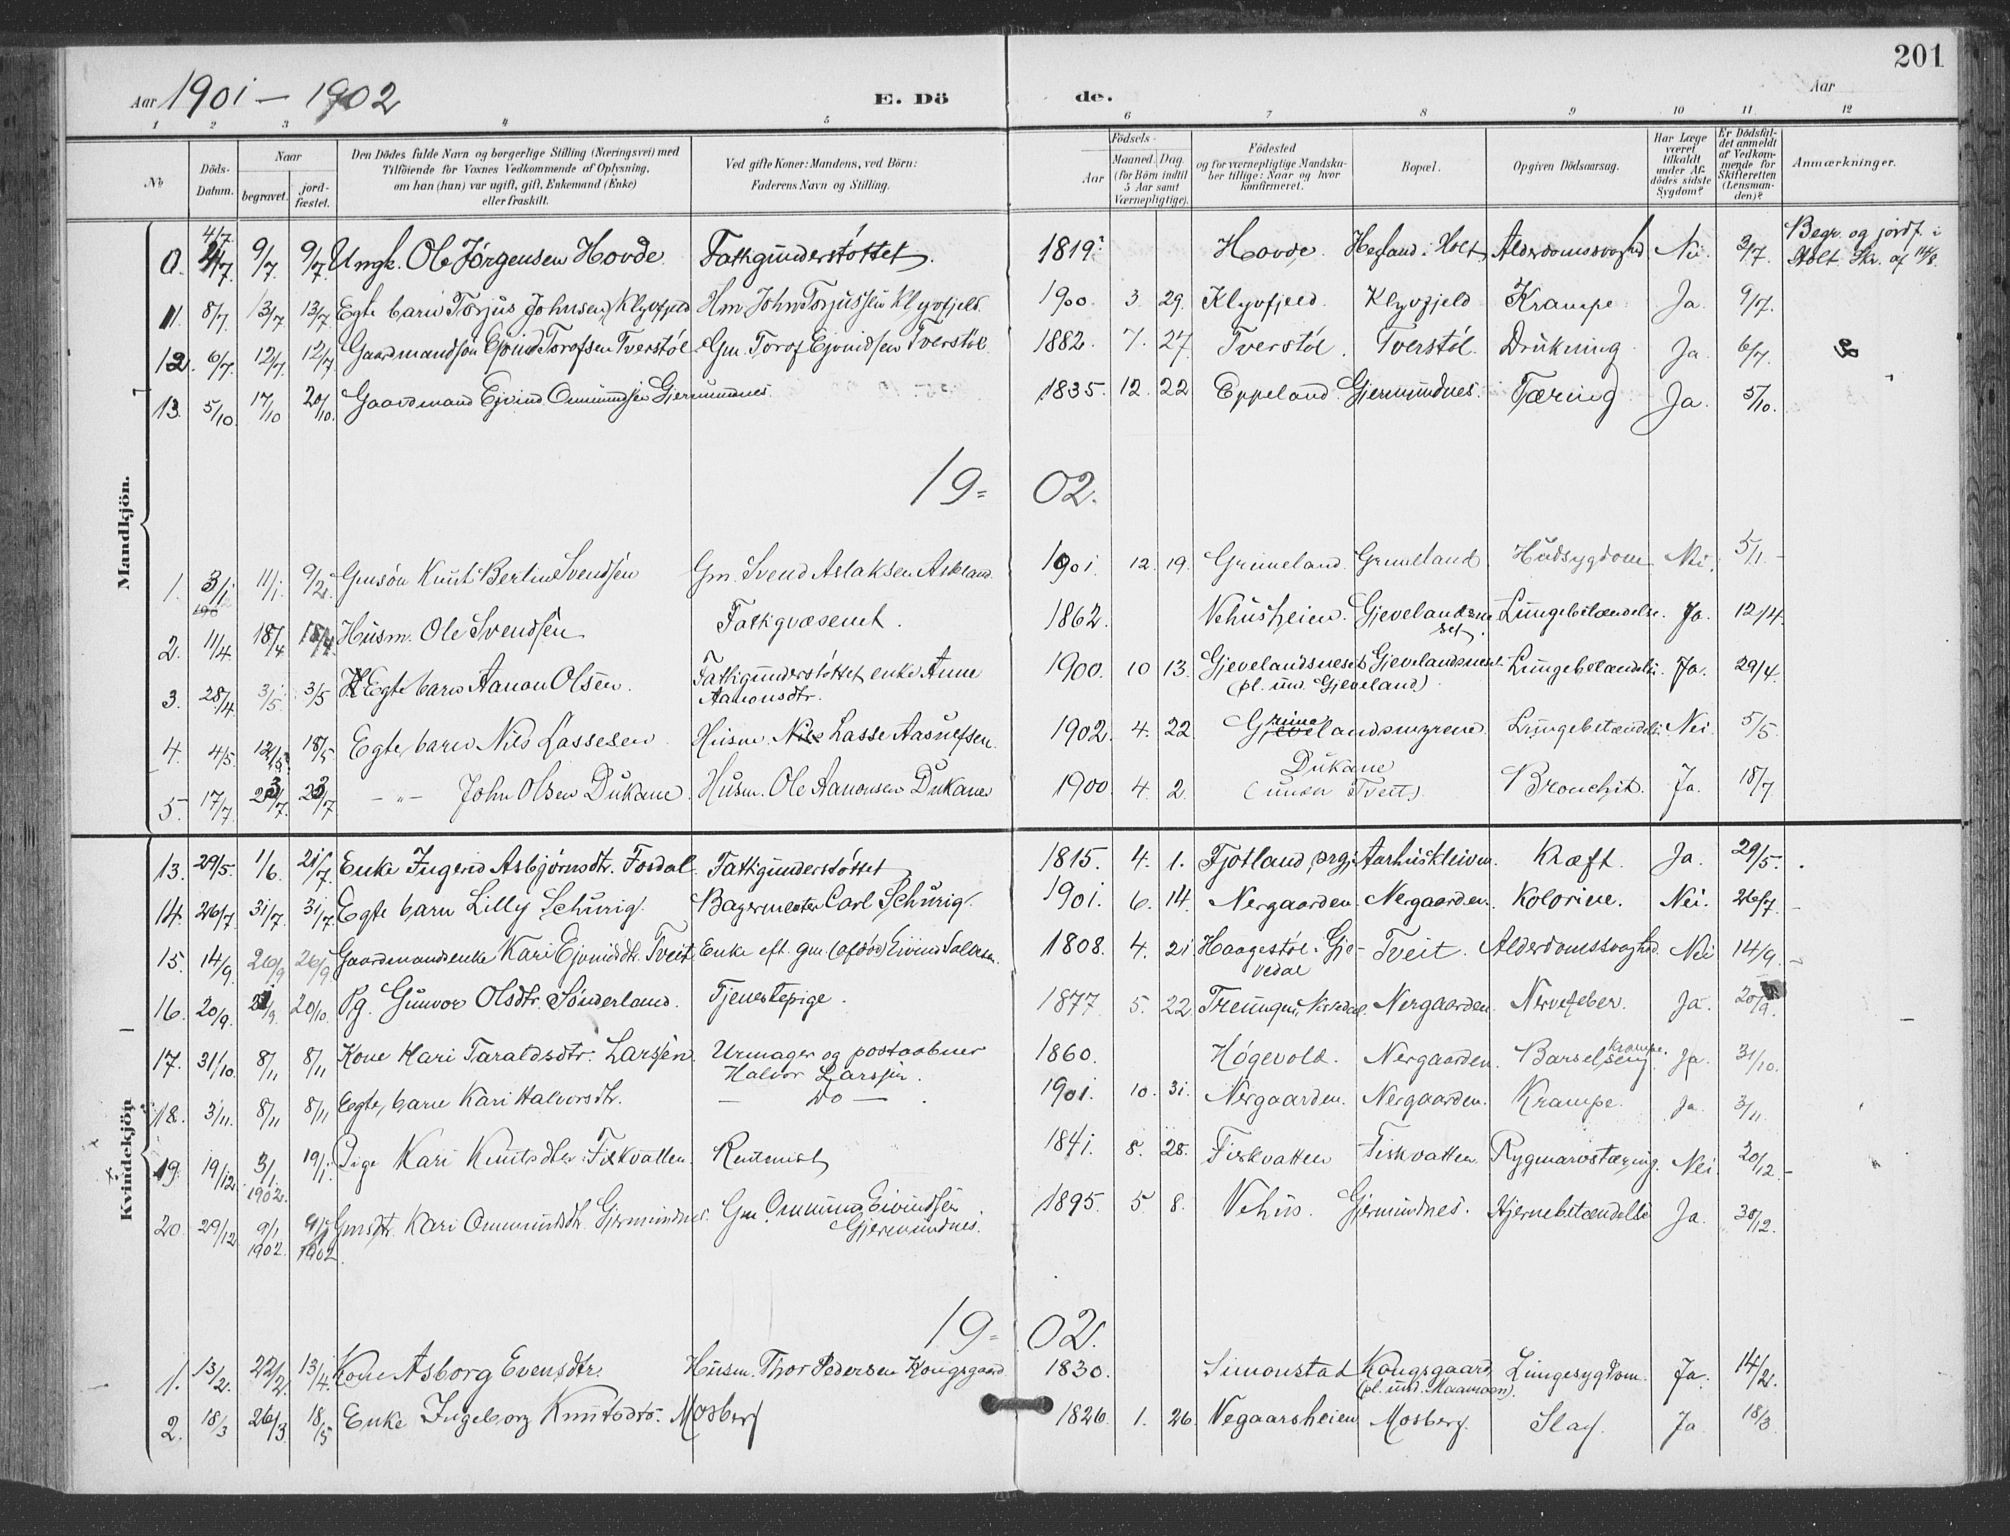 201
Aar 1901 - 1902 E. Dö de. Aar
1 2 3 4 5 6 7 8 9 10 11 12
No. Döds-Datum. Naar begravet. jord-fæstet. Den Dödes fulde Navn og borgerlige Stilling (Næringsvei) med Tilföiende for Voxnes Vedkommende af Oplysning, om han (hun) var ugift, gift, Enkemand (Enke) eller fraskilt. Ved gifte Koner: Mandens, ved Börn: Faderens Navn og Stilling. Födsels- Aar Maaned. Dag. (for Börn indtil 5 Aar samt Værnepligtige). Födested og for værnepligtige Mandskaber tillige: Naar og hvor konfirmeret. Bopæl. Opgiven Dödsaarsag. Har Læge været tilkaldt under Afdödes sidste Sygdom? Er Dödsfaldet anmeldt af Vedkommende for Skifteretten (Lensmanden)? Anmærkninger.
Mandkjön.
0. 4/7 9/7 9/7 Ungk. Ole Jørgensen Hovde Fattigunderstøttet. 1819. Hovde. Hegland i Holt Alderdomssvaghed Nei 3/7. Begr. og jordf. i Holt Skr. af 14/8.
11. 8/7. 13/7 13/7 Egte barn Torjus Johnsen Klyvfjeld Hm. John Torjussen Klyvfjeld. 1900. 3. 29. Klyvfjeld. Klyvfjeld Krampe Ja. 9/7.
12. 6/7. 12/7. 12/7 Gaardmandsøn Ejvind Torofsen Tverstøl Gm. Torof Ejvindsen Tverstøl. 1882. 7. 27. Tverstøl. Tverstøl. Drukning Ja. 6/7.
13. 5/10. 17/10 20/10. Gaardmand Ejvind Ommundsen Gjermundnes. 1835. 12. 22 Eppeland. Gjermundnes. Tæring Ja. 5/10.
19= 02.
1. 3/1 11/1 9/2. Gmsøn Knut Bertin Svendsen Gm. Svend Aslaksen Askland. 1901. 12. 19. Grimeland. Grimeland Hudsygdom Nei. 5/1. -
2. 11/4. 18/4 18/4 Husm. Ole Svendsen Fattigvæsenet. 1862. Vehusheien. Gjevelandsneset. Lungebetændelse. Ja. 12/4.
3. 28/4 3/5. 3/5 Egte barn Aanon Olsen. Fattigunderstøttet enke Anne Aanonsdtr. 1900. 10 13. Gjevelandsneset (pl. und. Gjeveland) Gjevelandsneset Lungebetændelse. Ja. 29/4.
4. 4/5. 12/5. 18/5 Egte barn Nils Lassesen Husm. Nils Lasse Aasulfsen. 1902. 4. 22. Grimelandsmyrene. Lungebetændelse. Nei. 5/5.
5. 17/7. 23/7. 23/7 - " - John Olsen Dukane. Husm. Ole Aanonsen Dukane 1900. 4. 2. Dukane (under Tveit). Bronchit. Ja. 18/7.
Kvindekjön
13. 29/5. 1/6. 21/7. Enke Ingerid Asbjørnsdtr. Fosdal. Fattigunderstøttet 1815. 4. 1. Fjotland prgj. Aarhuskleiven. Kræft. Ja. 29/5. .
14. 26/7 31/7. 31/7. Egte barn Lilly Schurig. Bagermester Carl Schurig. 1901. 6. 14. Nergaarden. Nergaarden. Kolorine. Nei. 26/7. -
15. 14/9. 26/9 26/9 Gaardmandsenke Kari Ejvindsdtr. Tveit Enke eft. gm. (afdød) Eivind Salvesen. 1808. 4. 21. Haagestøl. Gjevedal Tveit. Alderdomssvaghed Nei 14/9. -
16. 20/9. 21/9. 20/10. Pg. Gunvor Olsdtr. Sønderland. Tjenestepige. 1877. 5. 22. Nergaarden. Nervefeber. Ja. 20/9.
17. 31/10. 8/11 8/11 Kone Kari Taraldsdtr. Larsen. Urmager og postaabner Halvor Larsen. 1860. Høgevold. Nergaarden. Barselseng Krampe. Ja. 31/10.
18. 3/11. 8/11 8/11 Egte barn Kari Halvorsdtr. - Do - . 1901. 10. 31. Nergaarden. Nergaarden. Krampe. Ja. 3/11.
19. 19/12. 3/1. 1902. 19/1. Pige Kari Knutsdtr. Fiskvatten. Rentenist 1841. 8. 28. Fiskvatten Fiskvatten Rygmarvstæring. Nei 20/12. -
20. 29/12. 9/1 1902. 9/2 1902. Gmsdtr. Kari Ommundsdtr. Gjermundnes. Gm. Ommund Eivindsen Gjermundnes. 1895. 5 8. Vehus. Gjermundnes. Hjernebetændelse Ja. 30/12.
19= 02.
1. 13/2. 22/2. 13/4. Kone Asborg Evensdtr. Husm. Thor Pedersen Kongsgaard 1830. Simonstad Kongsgaard (pl. und. Maamoen). Lungesygdom. Ja. 14/2.
2. 18/3 26/3 18/5 Enke Ingeborg Knutsdtr. Mosberg 1826. 1. 26. Vegaarsheien Mosberg. Slag. Ja. 18/3.